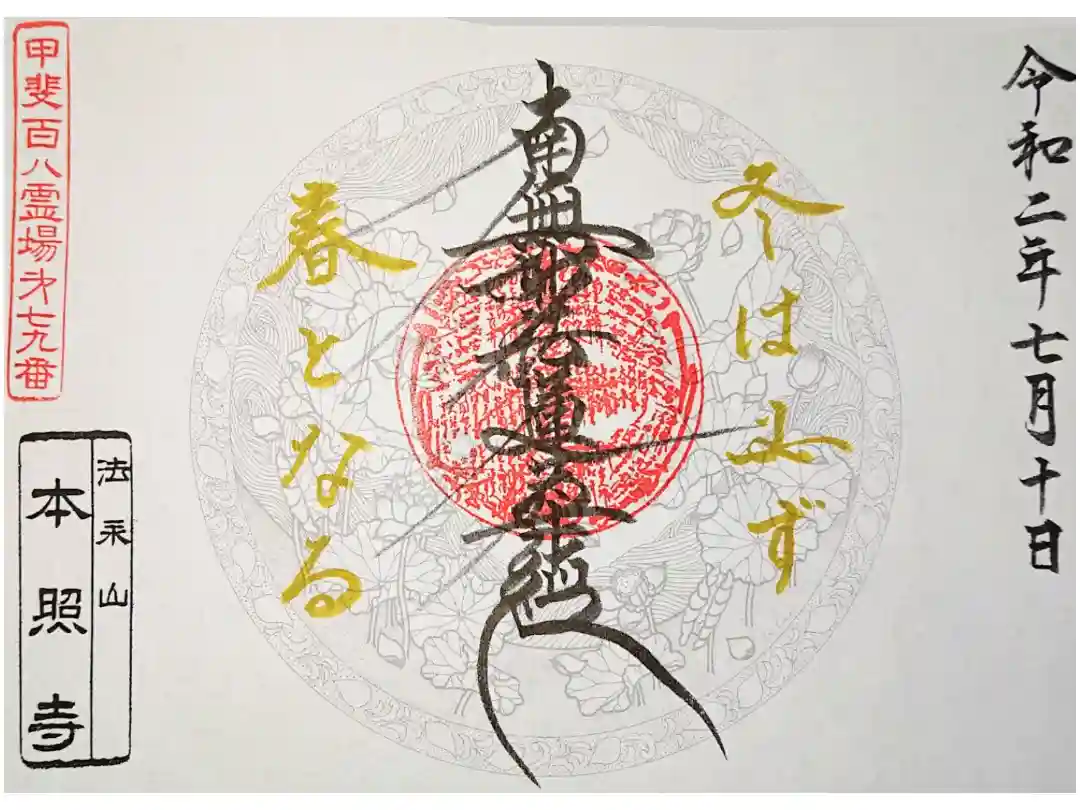 令和二年七月十日
冬は必ず
南無妙法蓮華経
春となる
甲斐百八霊場第七九番
法永山
本照寺